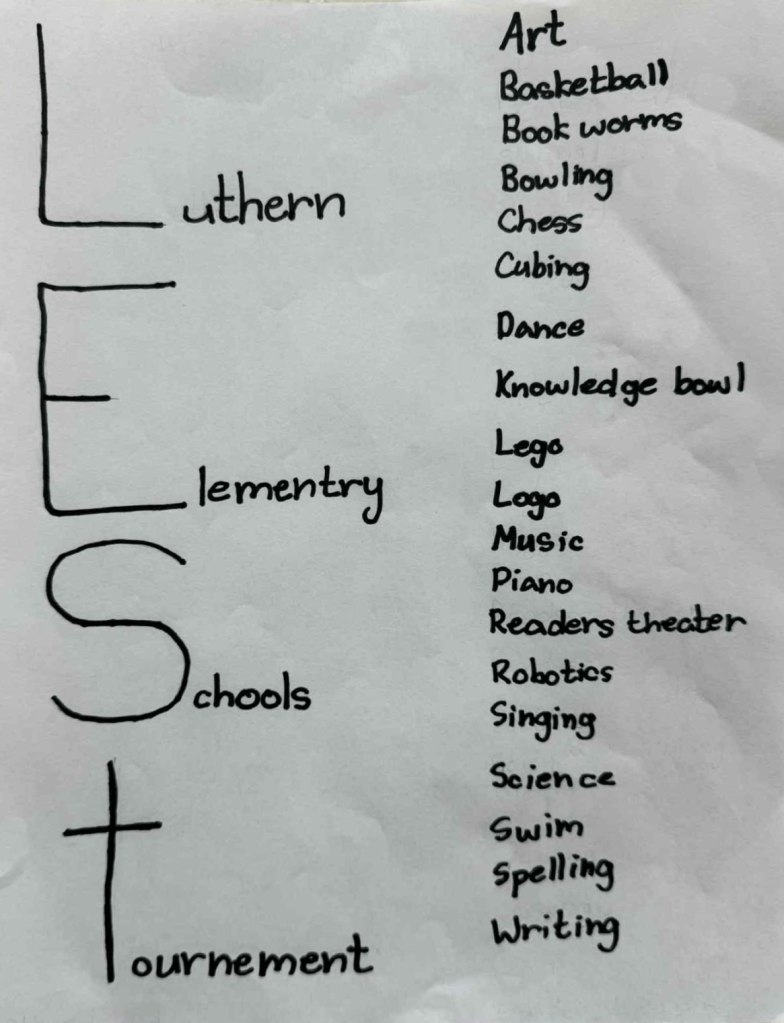 Luthern
Elementry
Schools
tournement
Art
Basketball
Book worms
Bowling
Chess
Cubing
Dance
Knowledge bowl
Lego
Logo
Music
Piano
Readers theater
Robotics
Singing
Science
Swim
Spelling
Writing